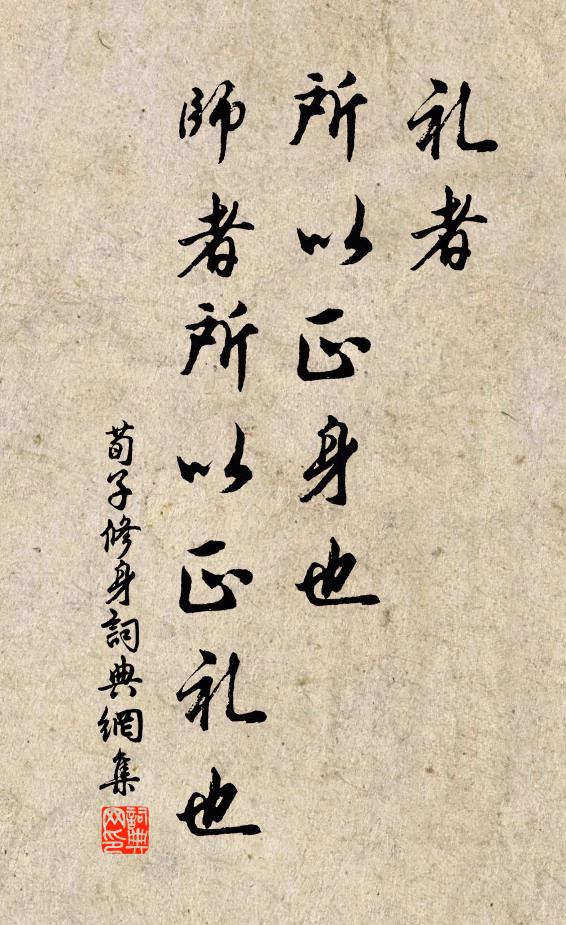 礼者
所以正身也
師者所以正礼也
荀子修身詞典網集
詞典网印